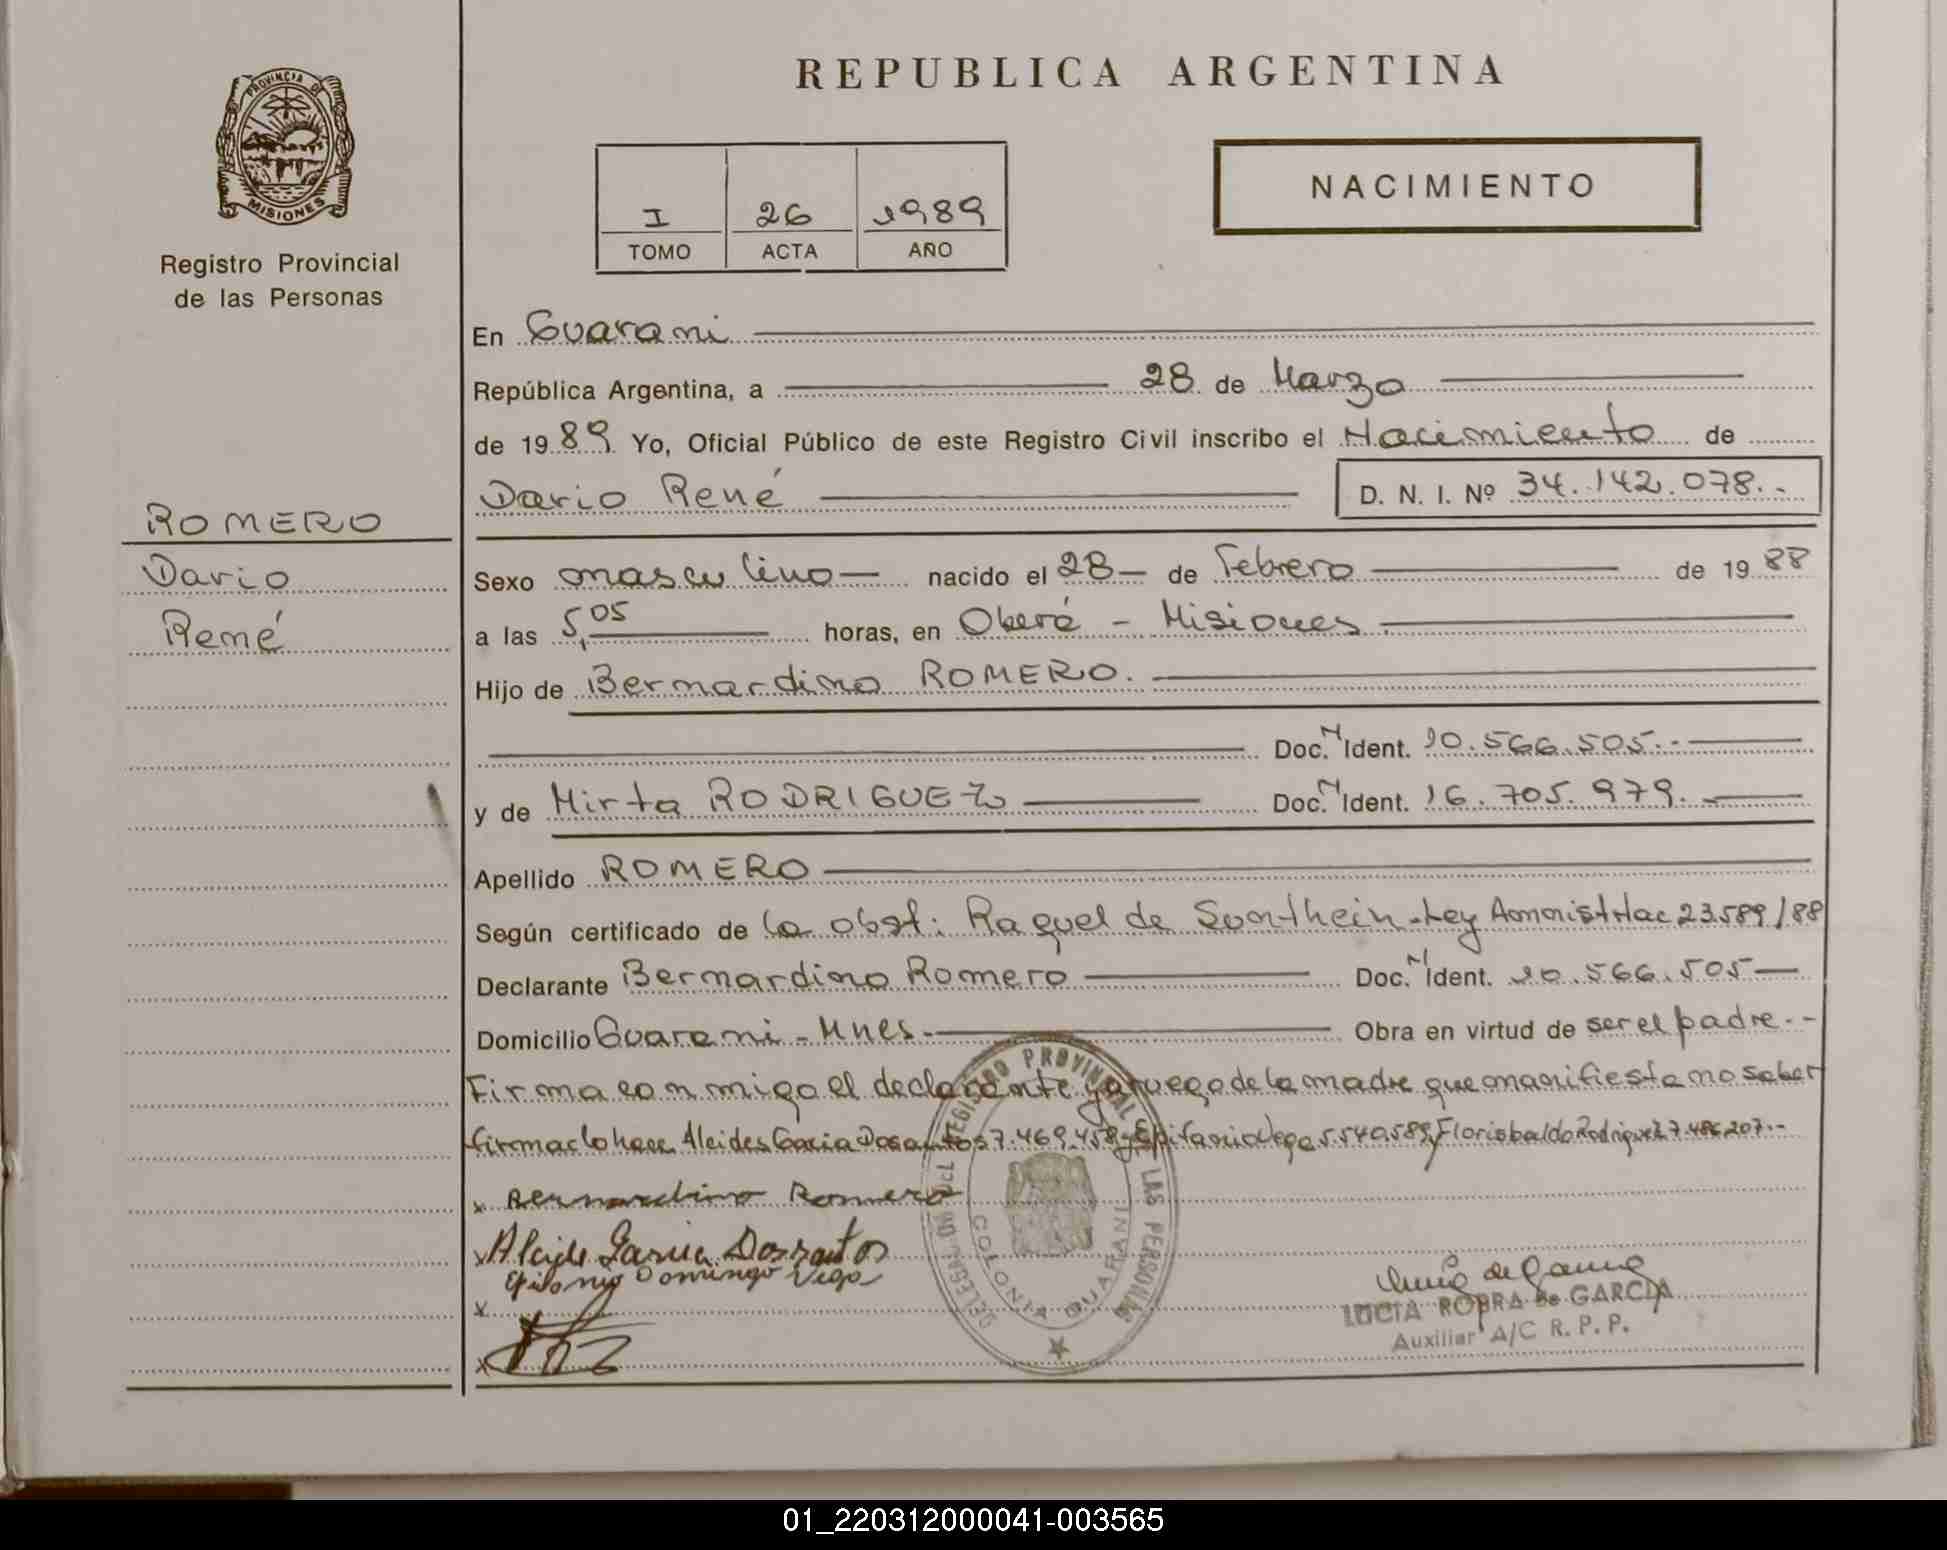 REPUBLICA ARGENTINA
PROVINCIA DE
MISIONES
Registro Provincial
de las Personas
I 26 1989
TOMO ACTA AÑO
NACIMIENTO
En Guarani
República Argentina, a 28 de Marzo
de 1989 Yo, Oficial Público de este Registro Civil inscribo el Nacimiento de
Dario René D. N. I. Nº 34.142.078.-
ROMERO
Dario
René
Sexo masculino nacido el 28 de Febrero de 1988
a las 5,05 horas, en Oberá - Misiones
Hijo de Bernardino ROMERO.
Doc. N Ident. 10.566.505.-
y de Mirta RODRIGUEZ Doc. N Ident. 16.705.979.
Apellido ROMERO
Según certificado de la obst. Raquel de Ley 23.589/88
Declarante Bernardino Romero Doc. N Ident. 10.566.505
Domicilio Guarani - Mnes.- Obra en virtud de ser el padre.-
Firma conmigo el declarante y a ruego de la madre que manifiesta no saber
firmar lo hace Alcides Garcia Dosantos 7.469.458 y Epifanio Vega 5.540.589 y Florisbaldo Rodriguez 7.486.207.-
x Bernardino Romero
x Alcide Garcia Dossantos
Domingo Vega
x
x
DELEGACION DEL REGISTRO PROVINCIAL DE LAS PERSONAS
COLONIA GUARANI
LUCIA ROBRA de GARCIA
Auxiliar A/C R. P. P.
01_220312000041-003565